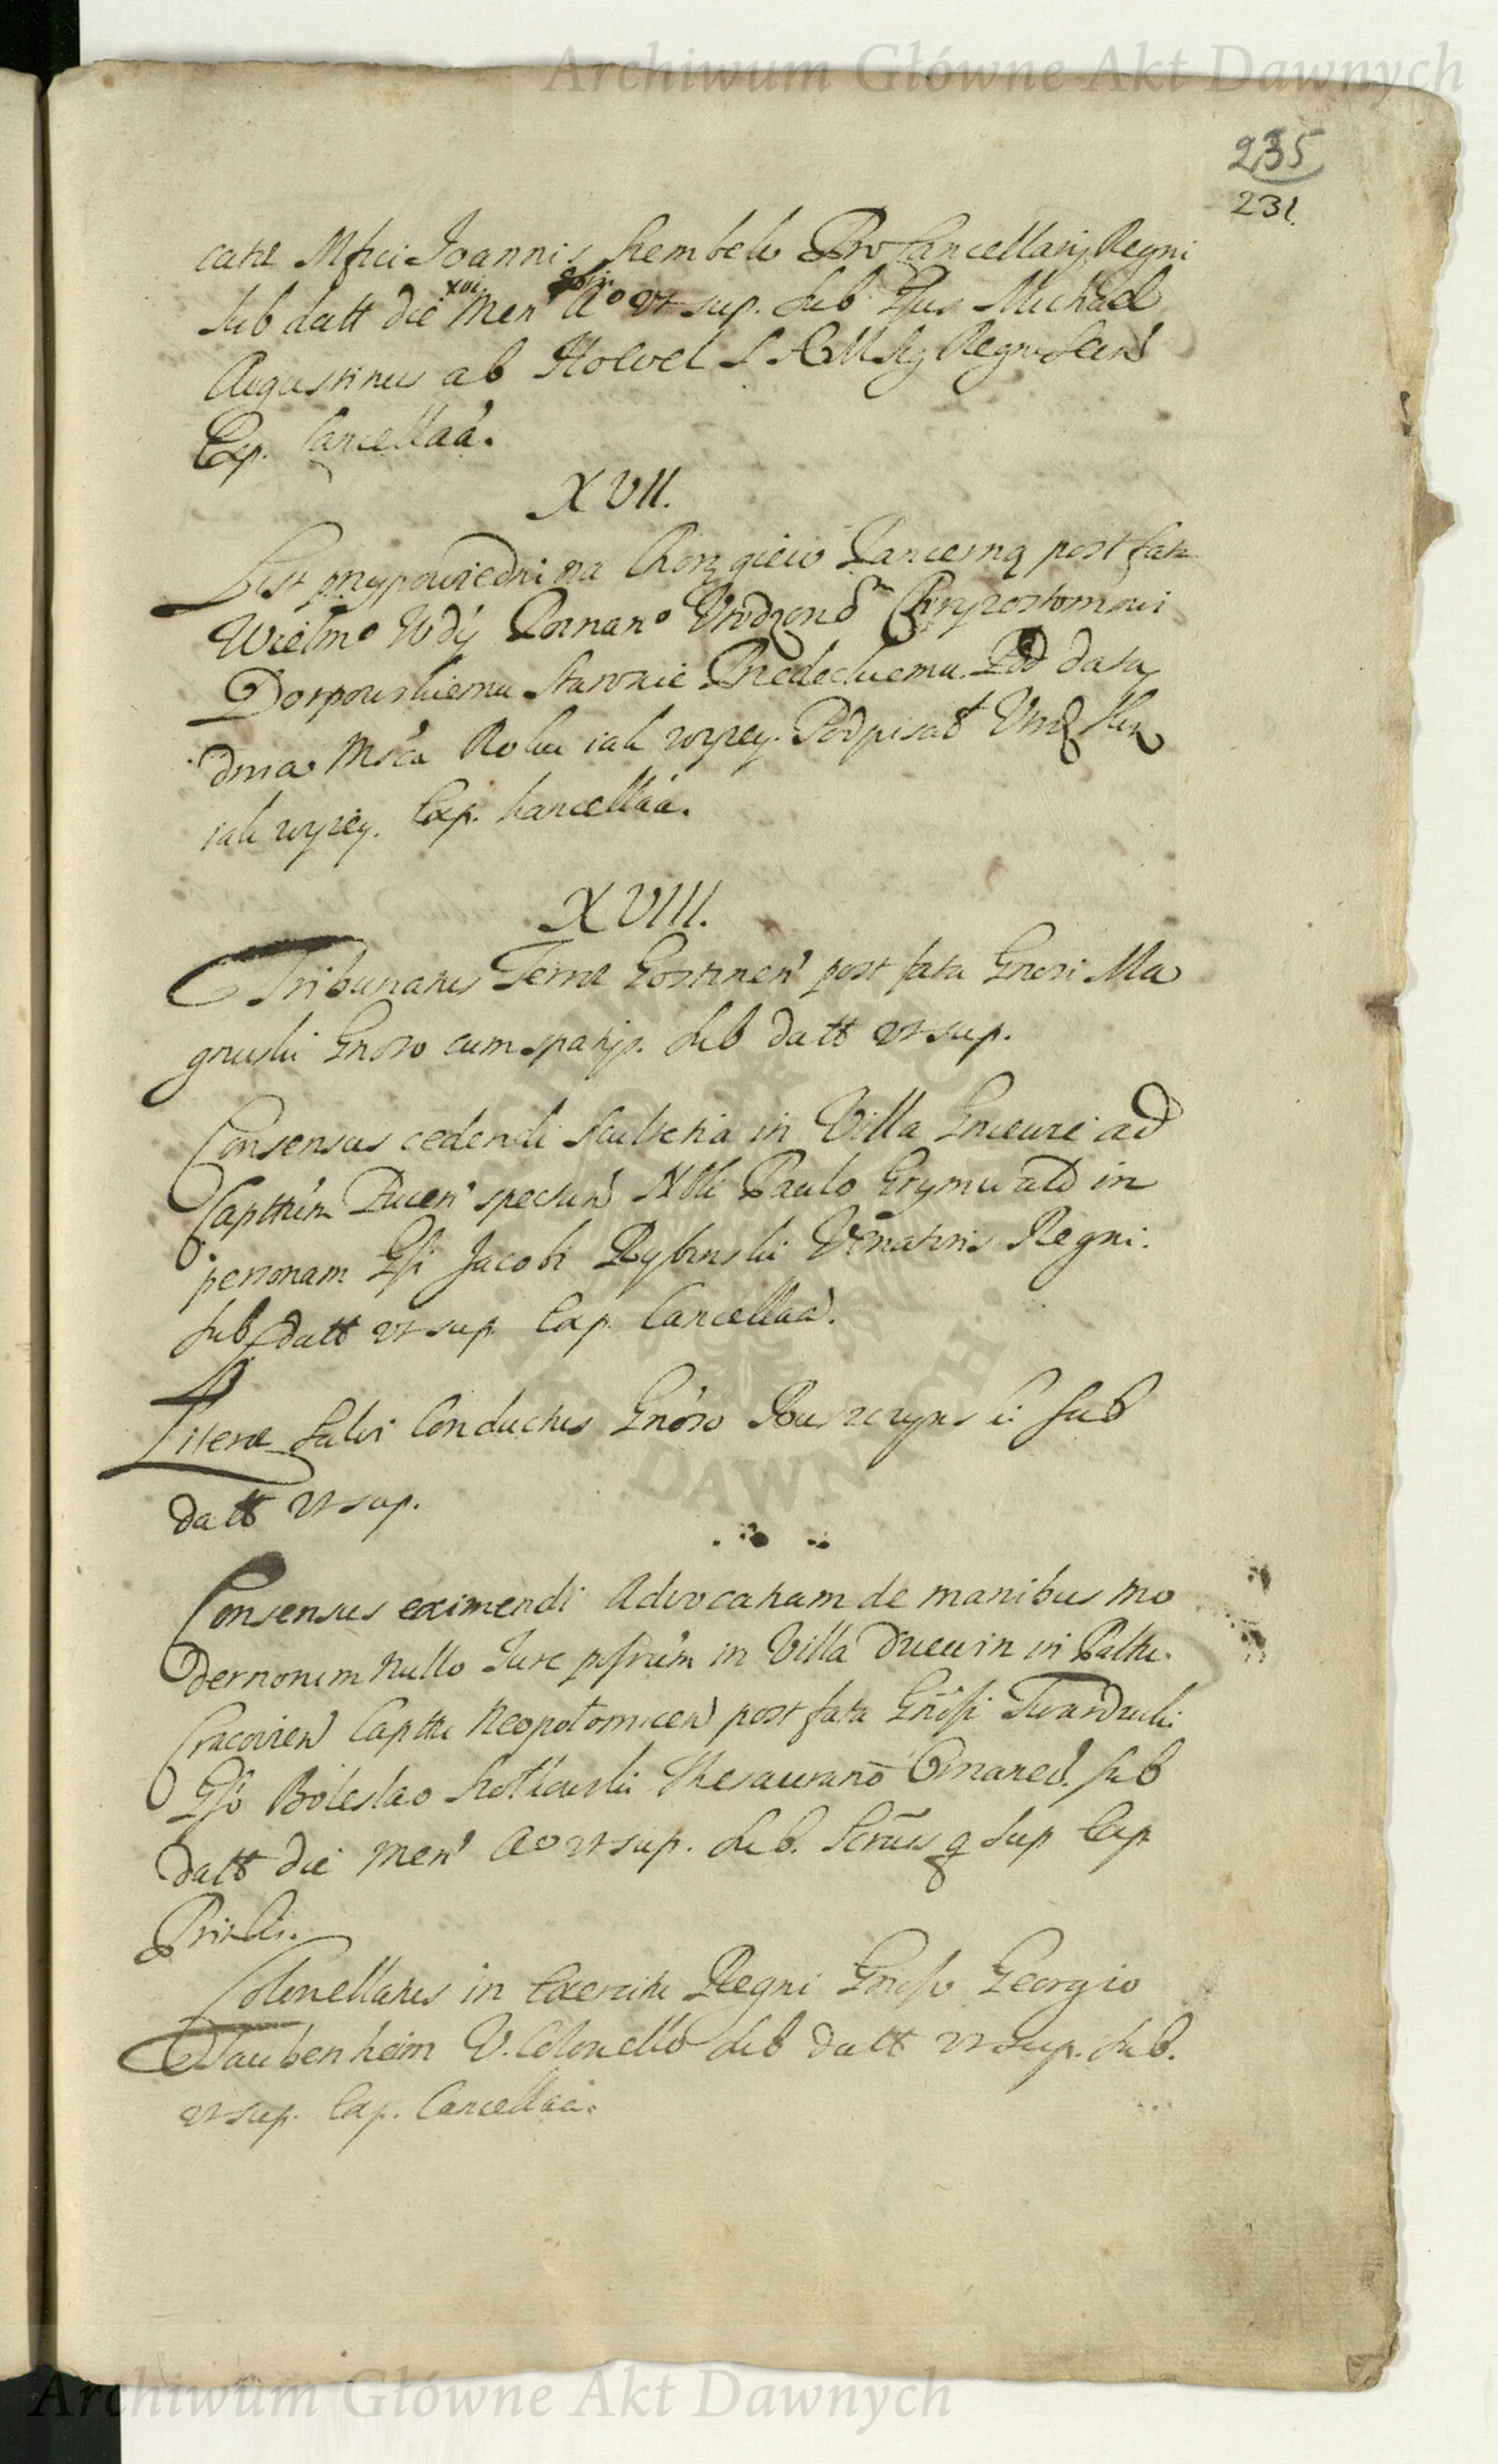 Archiwum Główne Akt Dawnych
235
231.
Mfici Joannis Szembek ProCancellarij Regni
Sub datt die XVII Men Xbris Aº vt sup. Sub Ejus Michael
Augustinus ab Holvel S R M Regni
Exp. Cancellaa.
XVII.
List przypowiedni na Chorągiew Pancerną post fata
Wielmº Wdy Poznanº Vrodzonº Chryzostomowi
Dorpowskiemu Staroście Pod datą
dnia Msca Roku iak wyzey. Podpisał Vrdz
iak wyzey. Exp. Kancellaa.
XVIII.
Tribunatus Terræ Gostinen post fata Gnosi Ma
gnuski Gnoso cum spatijs. Sub datt vt sup.
Consensus cedendi Scultetia in Villa Gniewie ad
Captum Pucen spectan Nbli Paulo Grymwald in
personam Gsi Jacobi Rybinski Venatoris Regni.
Sub datt vt sup Exp. Cancellaa.
Literæ Salvi Conductus Gnoso sub
datt vt sup.
Consensus eximendi Advocatiam de manibus mo
dernorum nullo Jure pssorum in Villa in Palttu
Cracovien Capttu Neopolomicen post fata Gnosi Twardzicki
Gso Boleslao Thesaurario Sub
datt die Men Ao vt sup. Sub. q Sup Exp

Colonellatus in Exercitu Regni Gnoso Georgio
Taubenheim V. Colonello Sub datt vt sup. Sub.
vt sup. Exp. Cancellaa.
DAWNYCH
Archiwum Główne Akt Dawnych